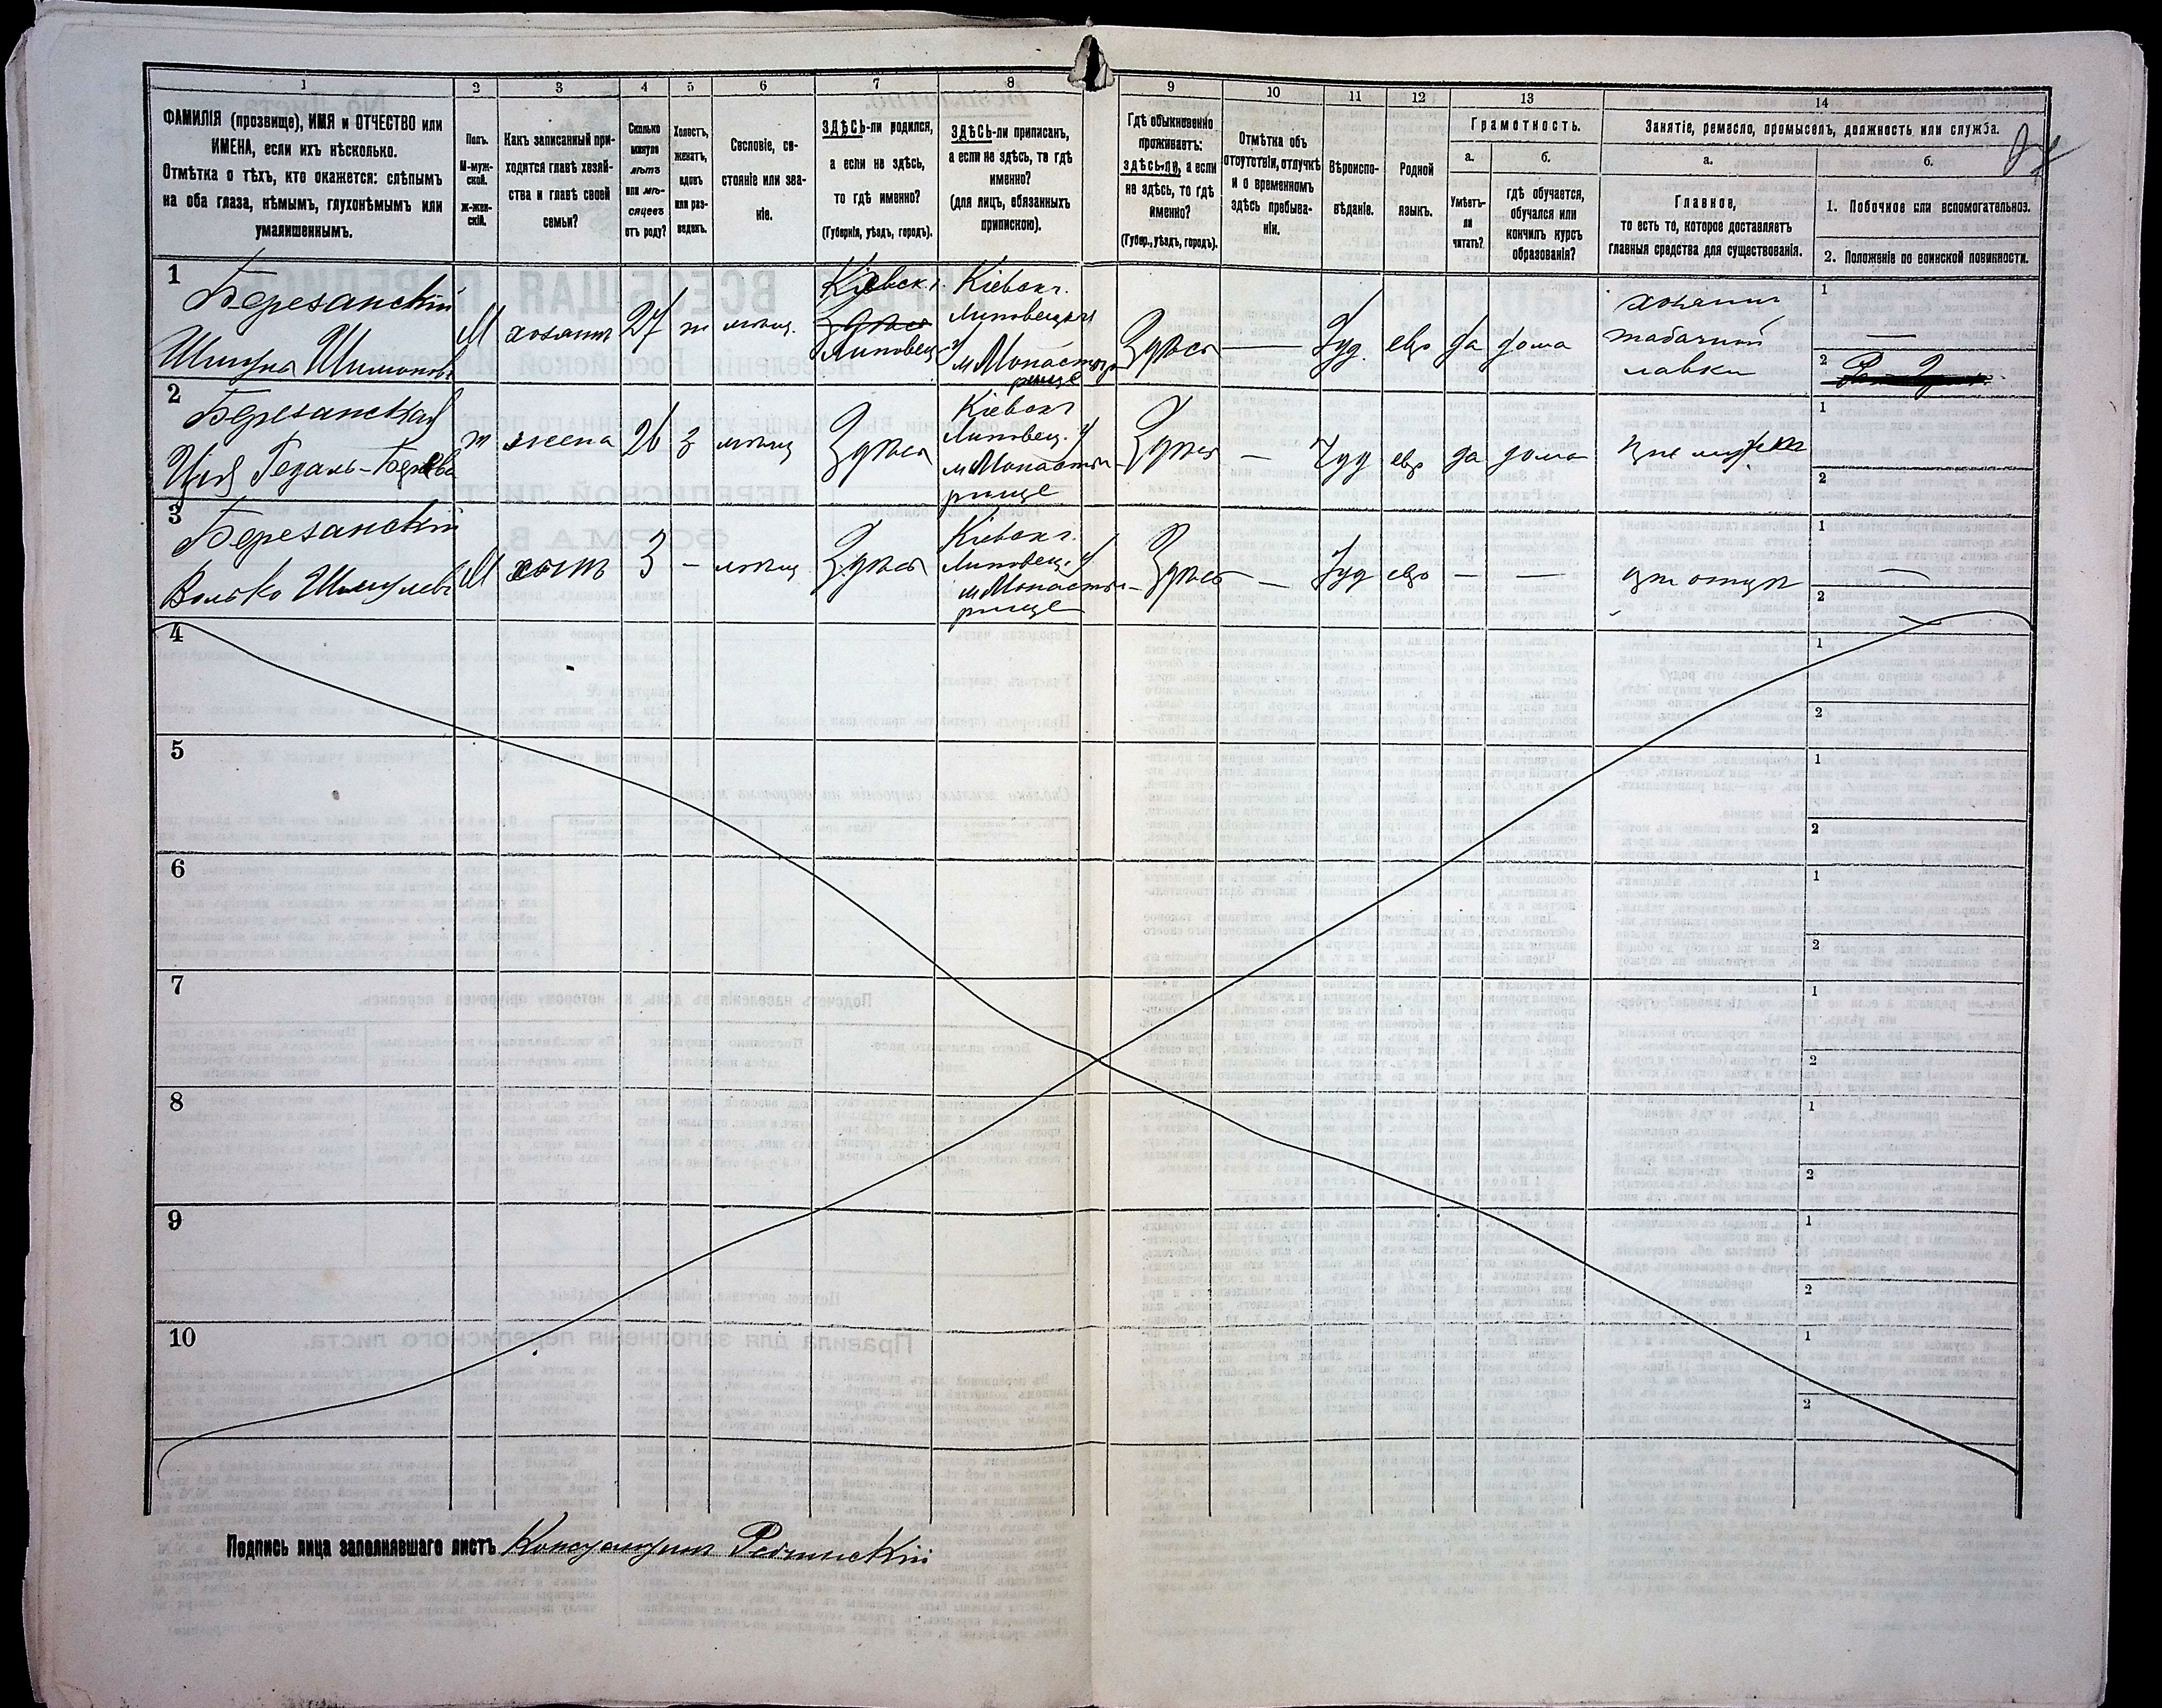 1 2 3 4 5 6 7 8 9 10 11 12 13 14
ФАМИЛІЯ (прозвище), ИМЯ и ОТЧЕСТВО или
ИМЕНА, если ихъ нѣсколько.
Отмѣтка о тѣхъ, кто окажется: слѣпымъ
на оба глаза, нѣмымъ, глухонѣмымъ или
умалишеннымъ.
Полъ.
М-муж-
ской.
Ж-жен-
скій.
Какъ записанный при-
ходится главѣ хозяй-
ства и главѣ своей
семьи?
Сколько
минуло
лѣтъ
или мѣ-
сяцевъ
отъ роду?
Холостъ,
женатъ,
вдовъ
или раз-
веденъ.
Сословіе, со-
стояніе или зва-
ніе.
ЗДѢСЬ-ли родился,
а если не здѣсь,
то гдѣ именно?
(Губернія, уѣздъ, городъ).
ЗДѢСЬ-ли приписанъ,
а если не здѣсь, то гдѣ
именно?
(для лицъ, обязанныхъ
припискою).
Гдѣ обыкновенно
проживаетъ:
здѣсь-ли, а если
не здѣсь, то гдѣ
именно?
(Губер., уѣздъ, городъ).
Отмѣтка объ
отсутствіи, отлучкѣ
и о временномъ
здѣсь пребыва-
ніи.
Вѣроиспо-
вѣданіе.
Родной
языкъ.
Грамотность.
а.
Умѣетъ-
ли
читать?
б.
гдѣ обучается,
обучался или
кончилъ курсъ
образованія?
Занятіе, ремесло, промыселъ, должность или служба.
а.
Главное,
то есть то, которое доставляетъ
главныя средства для существованія.
б.
1. Побочное или вспомогательное.
2. Положеніе по воинской повинности.
1
Березанскій
Шмуна Шимонов
М хозяинъ 27 ж мѣщ.
Кіевск.г.
Здѣсь
Липовец. у
Кіевск г.
Липовецк
м Монасты
рище
Здѣсь — Іуд. евр да дома
хозяинъ
табачной
лавки
1 —
2
2
Березанская
Ж жена 26 З мѣщ Здѣсь
Кіевск г
Липовец. у
м Монасты-
рище
Здѣсь — Іуд евр да дома при мужѣ
1
2
3
Березанскій
Волько Шмулев
М сынъ 3 — мѣщ Здѣсь
Кіевск г.
Липовец. у
м Монасты-
рище
Здѣсь — Іуд евр — — при отцѣ
1 —
2
4
1
2
5
1
2
6
1
2
7
1
2
8
1
2
9
1
2
10
1
2
Подпись лица заполнявшаго листъ